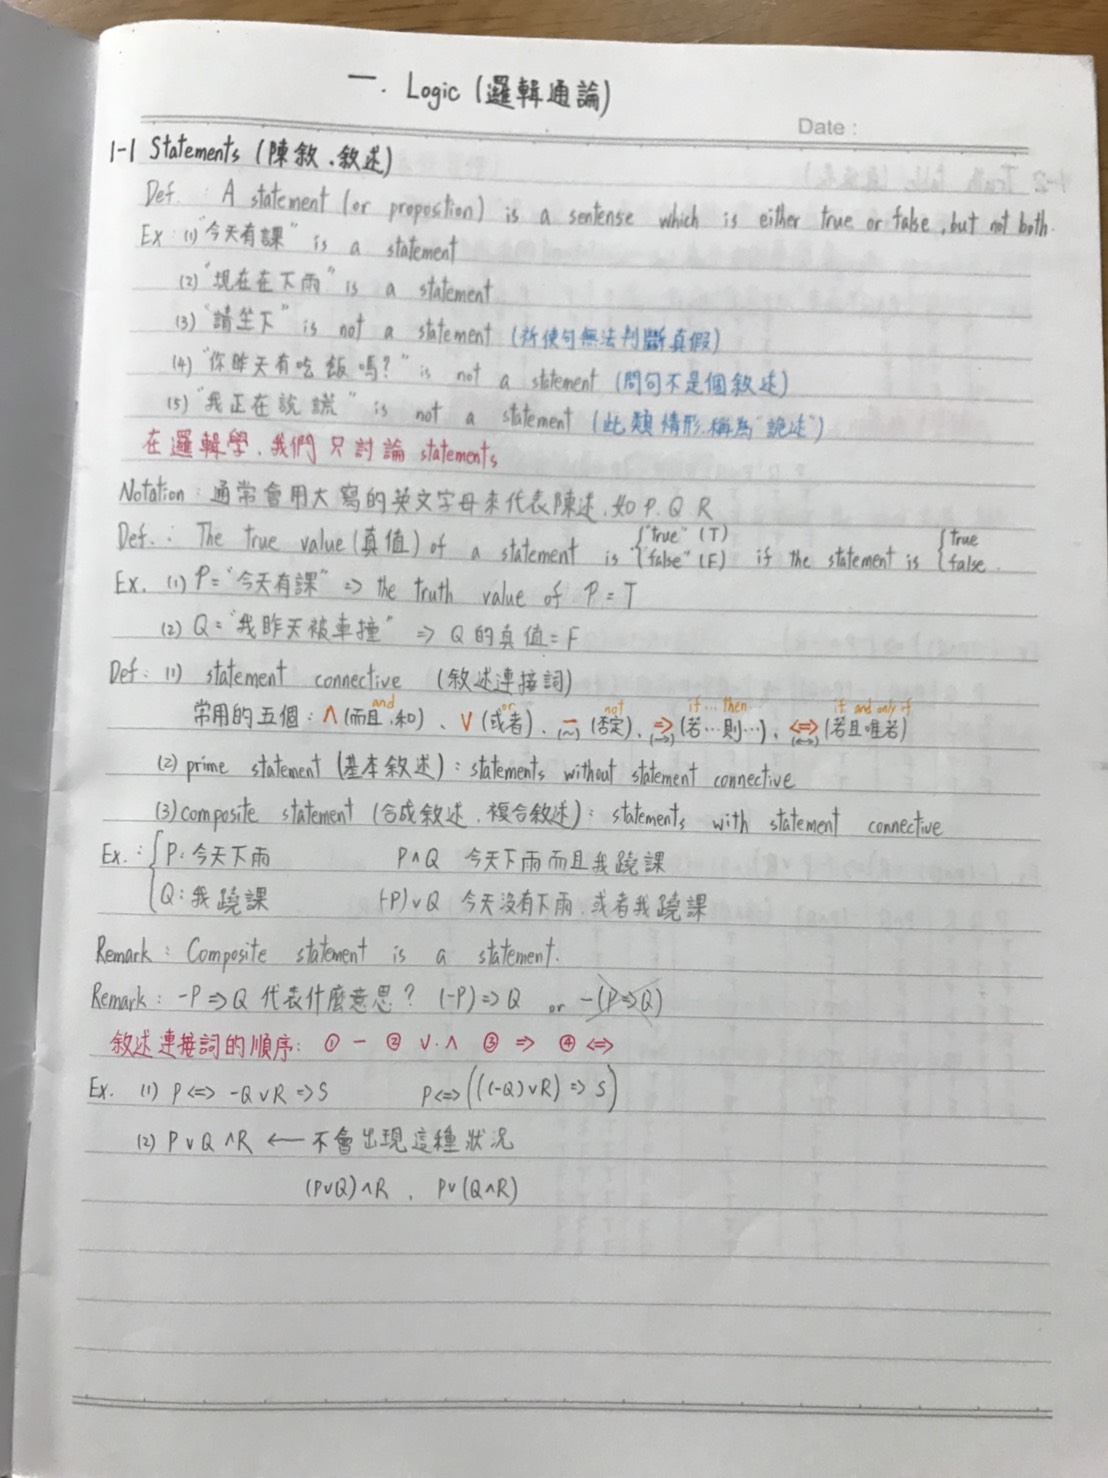 一. Logic (邏輯通論)
Date :
1-1 Statements (陳敘、敘述)
Def. : A statement (or propostion) is a sentence which is either true or false, but not both.
Ex : (1) "今天有課" is a statement
(2) "現在在下雨" is a statement
(3) "請坐下" is not a statement (祈使句無法判斷真假)
(4) "你昨天有吃飯嗎?" is not a statement (問句不是個敘述)
(5) "我正在說謊" is not a statement (此類情形,稱為"詭述")
在邏輯學,我們只討論 statements
Notation : 通常會用大寫的英文字母來代表陳述,如 P. Q R
Def. : The true value (真值) of a statement is { "true" (T) "false" (F) if the statement is { true false.
Ex. (1) P = "今天有課" => the truth value of P = T
(2) Q = "我昨天被車撞" => Q 的真值 = F
Def : (1) statement connective (敘述連接詞)
and or not if … then … if and only if
常用的五個 : ∧ (而且,和)、∨ (或者)、− (~) (否定)、=> (→) (若…則…)、<=> (↔) (若且唯若)
(2) prime statement (基本敘述) : statements without statement connective
(3) composite statement (合成敘述、複合敘述) : statements with statement connective
Ex. : { P : 今天下雨 P∧Q 今天下雨而且我蹺課
Q : 我蹺課 (-P)∨Q 今天沒有下雨,或者我蹺課
Remark : Composite statement is a statement.
Remark : -P => Q 代表什麼意思? (-P) => Q or -(P=>Q)
敘述連接詞的順序: ① − ② ∨.∧ ③ => ④ <=>
Ex. (1) P <=> -Q∨R => S P <=> (((-Q)∨R) => S)
(2) P∨Q∧R ← 不會出現這種狀況
(P∨Q)∧R , P∨(Q∧R)